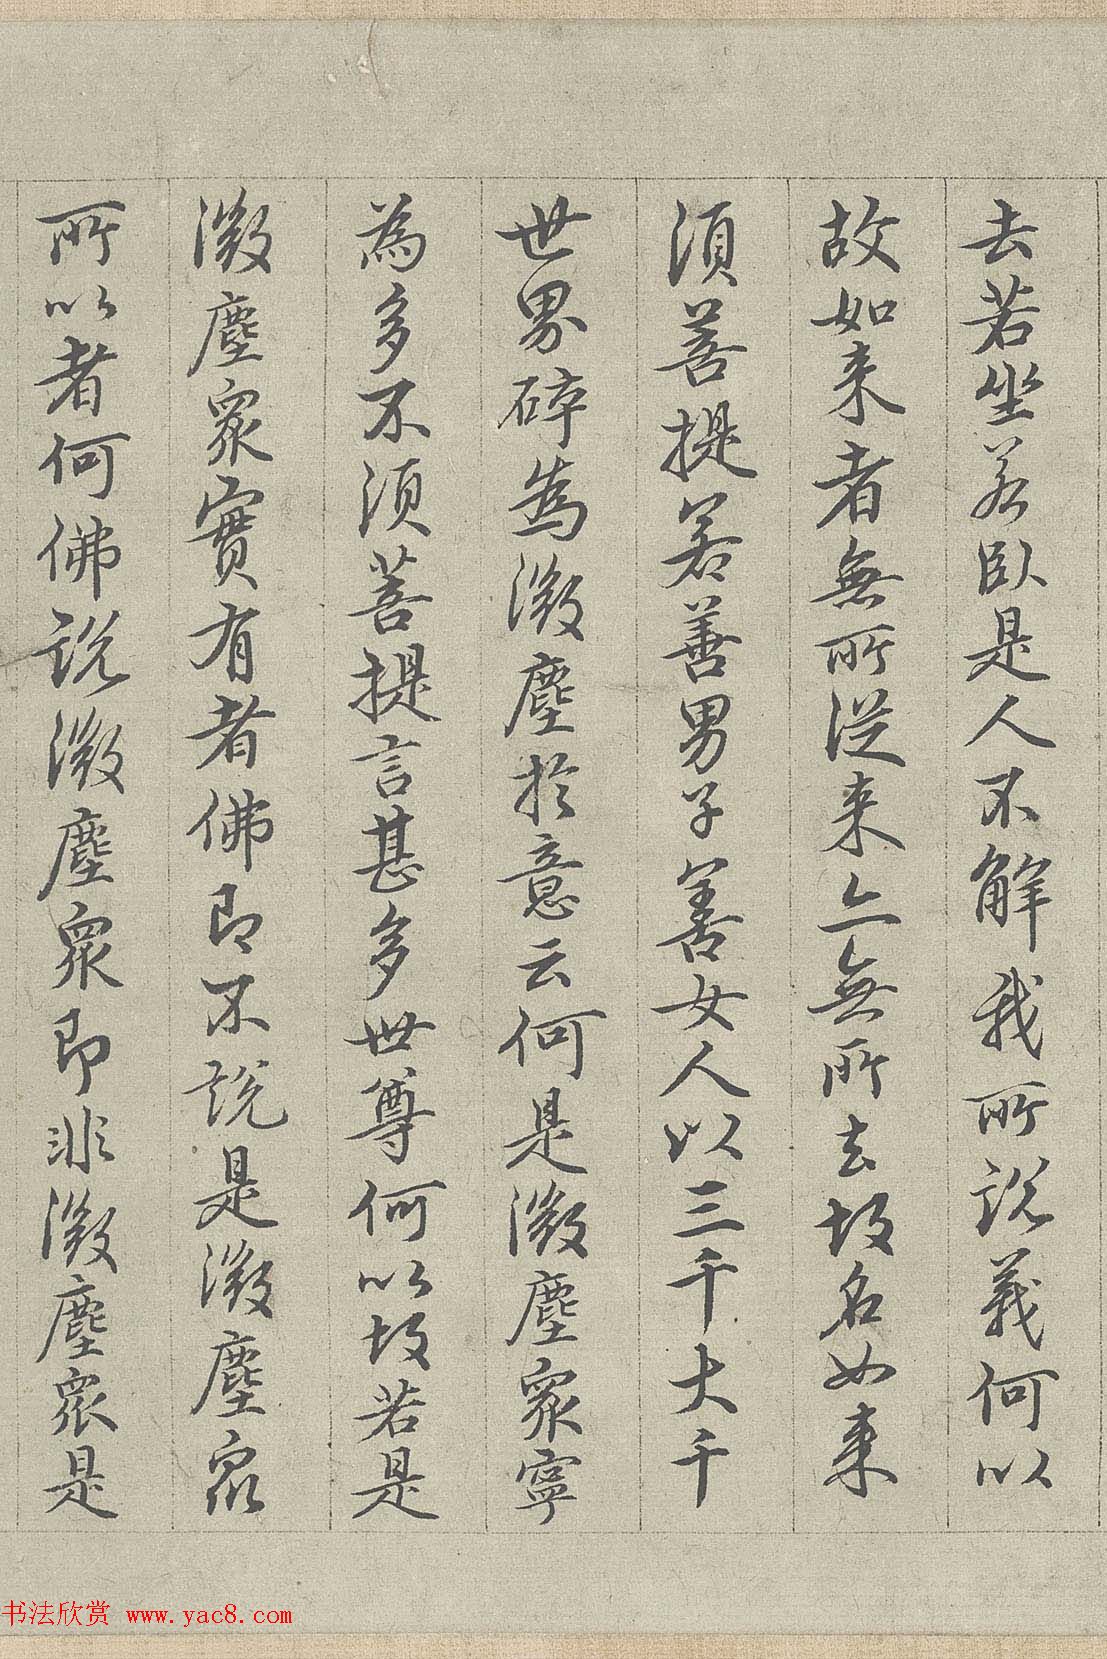 去若坐若臥是人不解我所說義何以
故如来者無所從来亦無所去故名如来
須菩提若善男子善女人以三千大千
世界碎為微塵於意云何是微塵衆寧
為多不須菩提言甚多世尊何以故若是
微塵衆實有者佛即不說是微塵衆
所以者何佛說微塵衆即非微塵衆是
书法欣赏 www.yac8.com